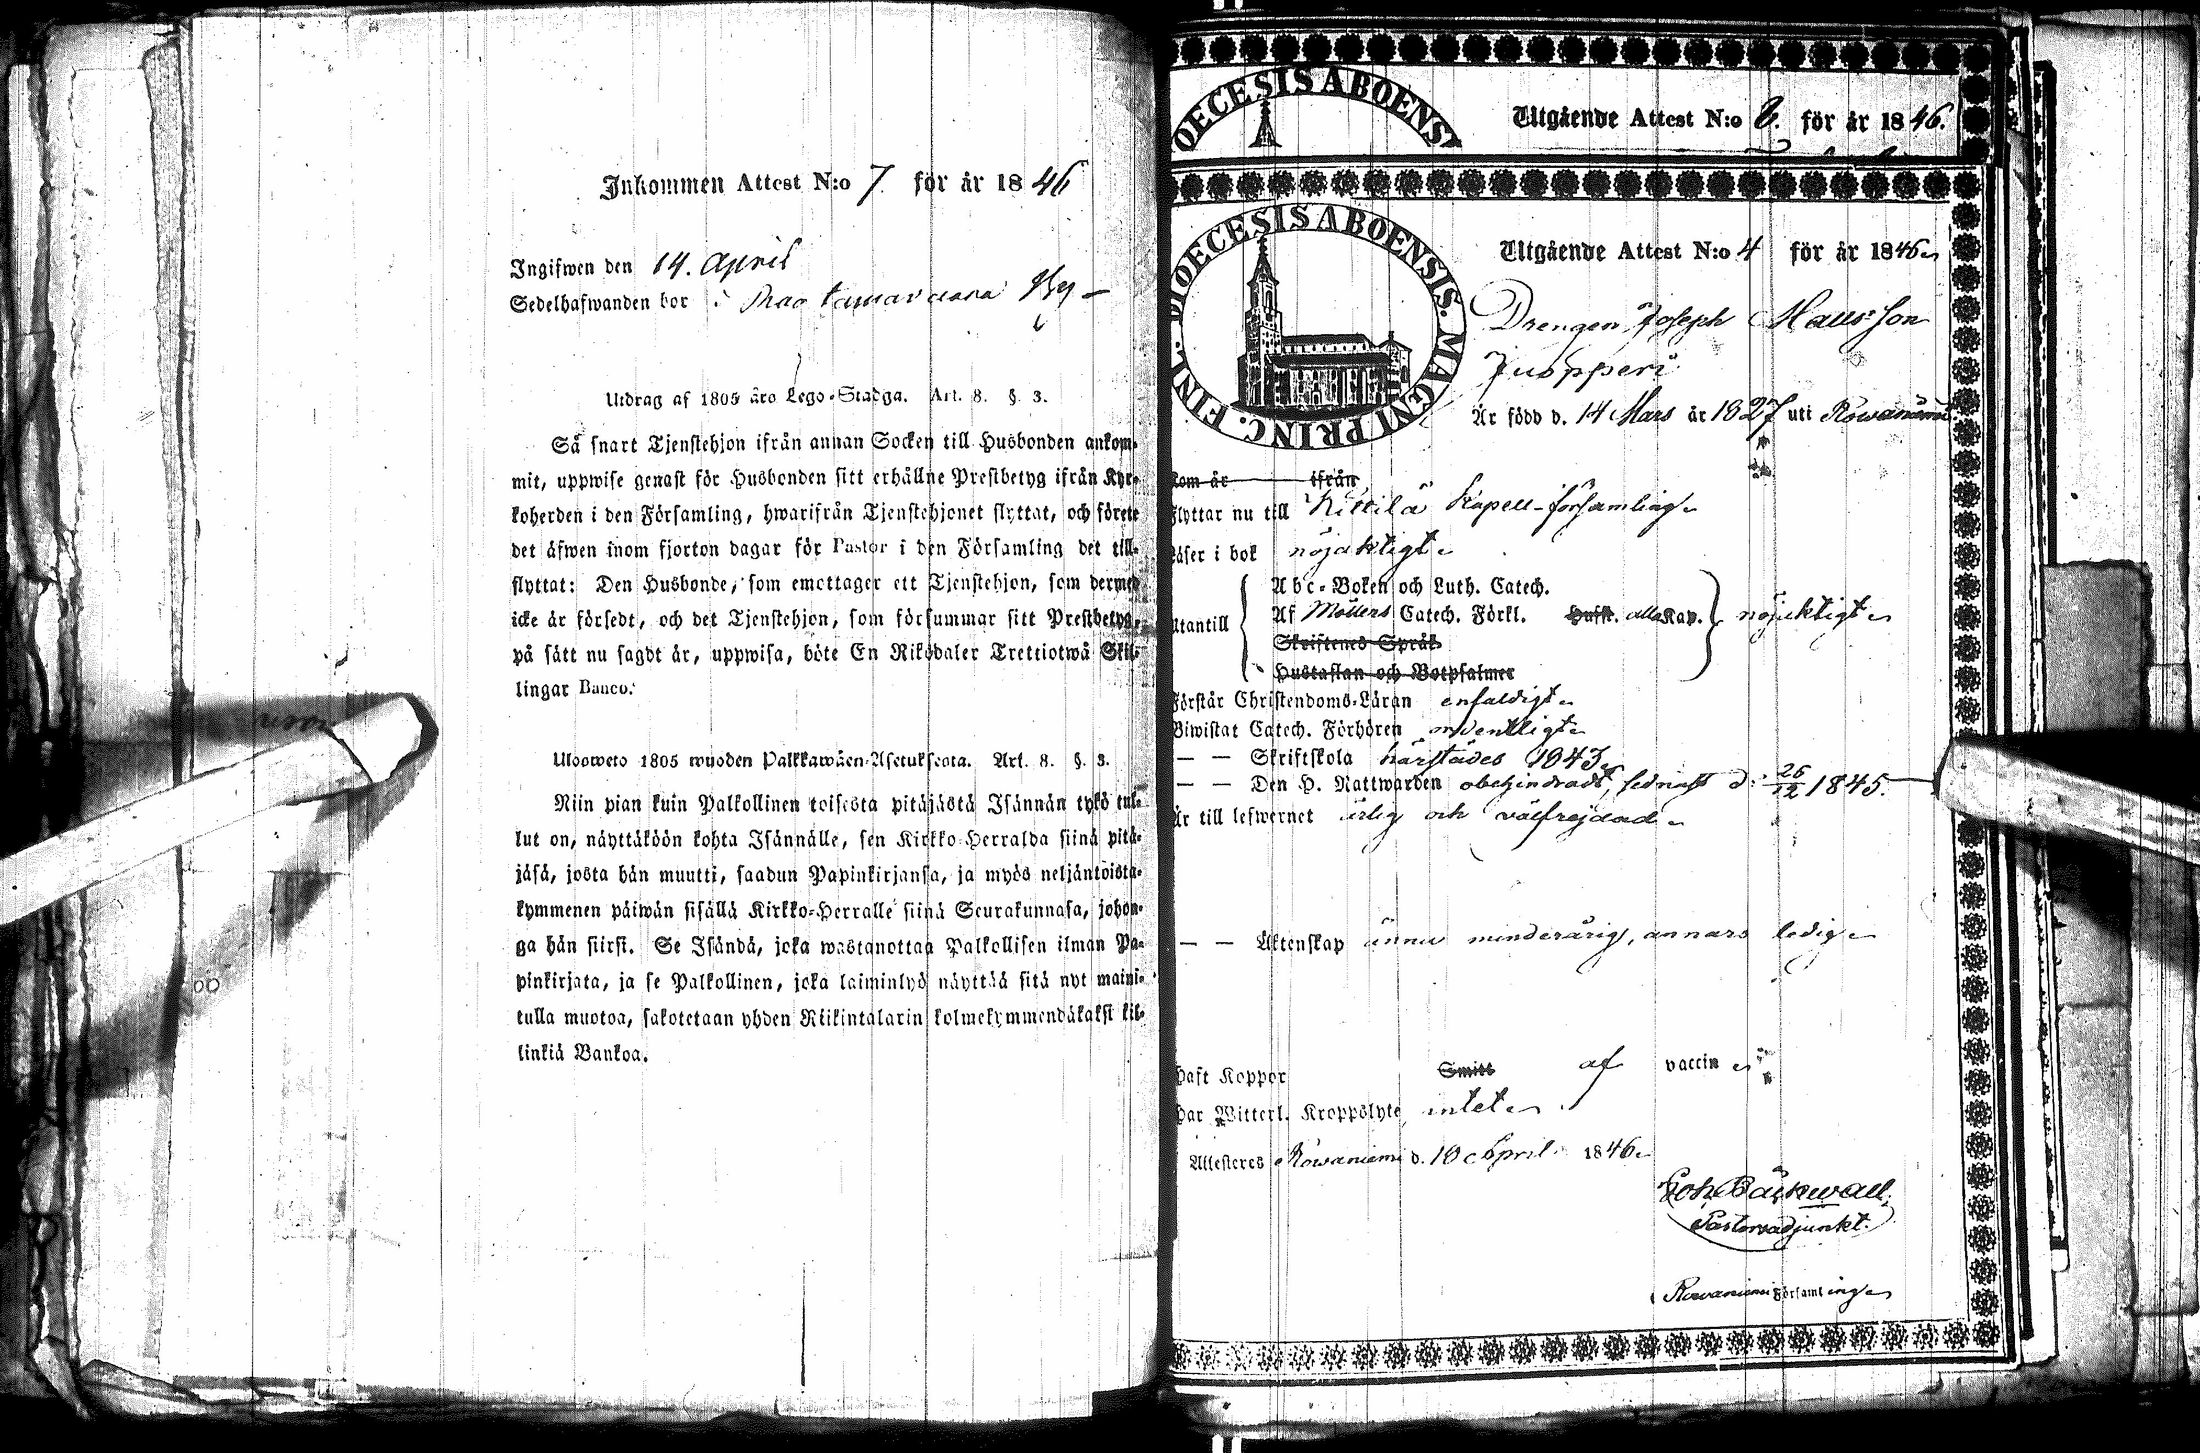 Inkommen Attest N:o 7. för år 1846
Ingifwen den 14. April
Sedelhafwanden bor i Rautamuswaara By
Utdrag af 1805 års Lego-Stadga. Art. 8. §. 3.
Så snart Tjenstehjon ifrån annan Socken till Husbonden ankom-
mit, uppwise genast för Husbonden sitt erhållne Prestbetyg ifrån Kyr-
koherden i den Församling, hwarifrån Tjenstehjonet flyttat, och förete
det äfwen inom fjorton dagar för Pastor i den Församling det till-
flyttat: Den Husbonde, som emottager ett Tjenstehjon, som dermed
icke är försedt, och det Tjenstehjon, som försummar sitt Prestbetyg,
på sätt nu sagdt är, uppwisa, böte En Riksdaler Trettiotwå Skil-
lingar Banco.
Ulosweto 1805 wuoden Palkkawäen-Asetuksesta. Art. 8. §. 3.
Niin pian kuin Palkollinen toisesta pitäjästä Isännän tykö tul-
lut on, näyttäköön kohta Isännälle, sen Kirkko-Herralda siinä pitä-
jäsä, josta hän muutti, saadun Papinkirjansa, ja myös neljäntoista-
kymmenen päiwän sisällä Kirkko-Herralle siinä Seurakunnasa, johon-
ga hän siirsi. Se Isändä, joka wastanottaa Palkollisen ilman Pa-
pinkirjata, ja se Palkollinen, joka laiminlyö näyttää sitä nyt maini-
tulla muotoa, sakotetaan yhden Riikintalarin kolmekymmendäkaksi kil-
linkiä Bankoa.
OECESIS ABOENSI
Utgående Attest N:o 6. för år 1846.
DIOECESIS ABOENSIS. MAGNI PRINC. FINL.
Utgående Attest N:o 4 för år 1846
Drengen Joseph Matts:son
Juopperi
Är född d. 14 Mars år 1827 uti Rowaniemi
kom år ifrån
Flyttar nu till Kittilä Kapell-församling
Läser i bok nöjaktigt
Utantill
Abc-Boken och Luth. Catech.
Af Möllers Catech. Förkl. Hufst. alla Kap. nöjaktigt
Skriftenes Språk
Hustaflan och Botpsalmer
Förstår Christendoms-Läran enfaldigt
Biwistat Catech. Förhören ordentligt
— — Skriftskola härstädes 1843
— — Den H. Nattwarden obehindradt, sednast d: 26/12 1845.
Är till lefwernet ärlig och välfrejdad
— — Äktenskap ännu minderårig, annars ledig
Haft Koppor Smitt af vaccin
Har Witterl. Kroppslyte intet
Attesteres Rowaniemi d. 10 April 1846
Joh. Bäckwall,
Pastorsadjunkt.
Rowaniemi Församling